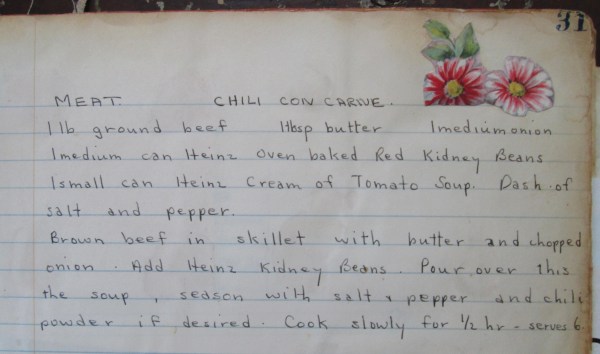 31
MEAT. CHILI CON CARNE.
1 lb ground beef 1 tbsp butter 1 medium onion
1 medium can Heinz Oven baked Red Kidney Beans
1 small can Heinz Cream of Tomato Soup. Dash of
salt and pepper.
Brown beef in skillet with butter and chopped
onion. Add Heinz Kidney Beans. Pour over this
the soup, season with salt & pepper and chili
powder if desired. Cook slowly for 1/2 hr - serves 6.